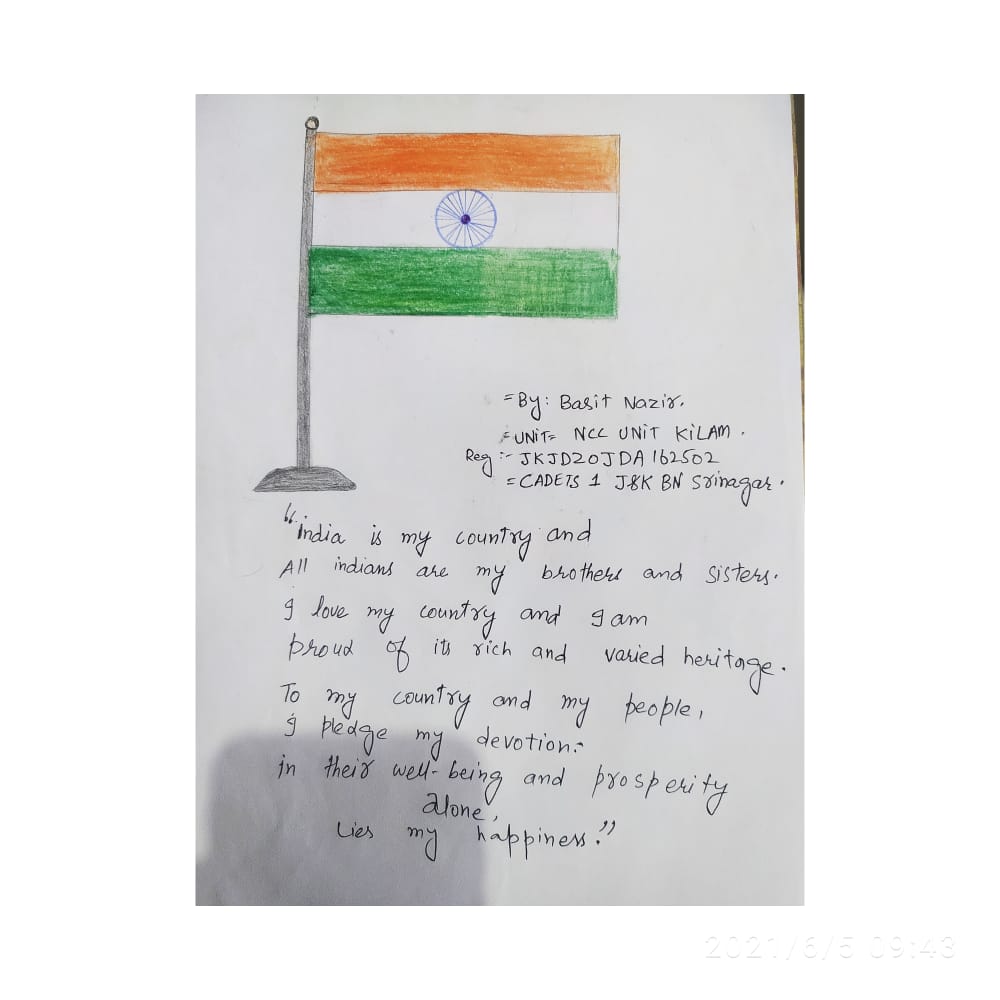 =By: Basit Nazir.
=UNIT= NCC UNIT KiLAM .
Reg :- JKJD20JDA162502
=CADETS 1 J&K BN Srinagar.
"india is my country and
All indians are my brothers and sisters.
I love my country and I am
proud of its rich and varied heritage.
To my country and my people,
I pledge my devotion:-
in their well-being and prosperity
alone,
Lies my happiness."
2021/6/5 09:43